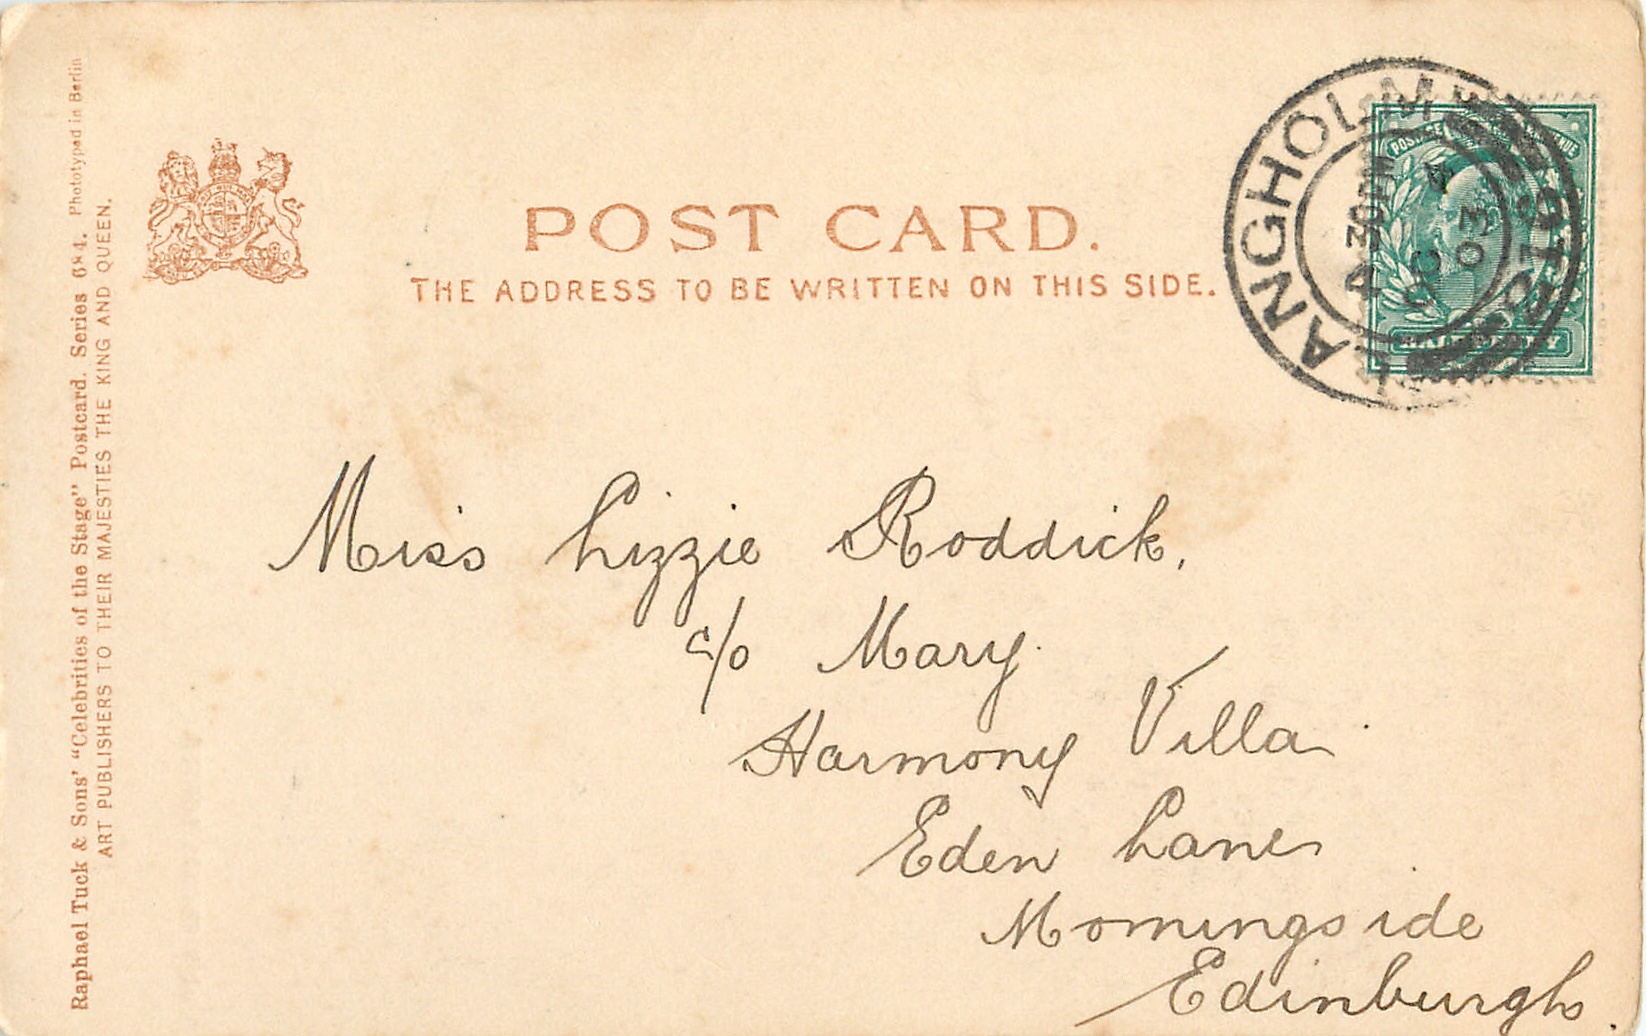 POST CARD.
THE ADDRESS TO BE WRITTEN ON THIS SIDE.
Raphael Tuck & Sons' "Celebrities of the Stage" Postcard. Series Phototyped in Berlin
ART PUBLISHERS TO THEIR MAJESTIES THE KING AND QUEEN.
LANGHOLM
4 30PM
OC 4
03
POSTAGE
HALFPENNY
Miss Lizzie Roddick,
c/o Mary
Harmony Villa
Eden Lane
Morningside
Edinburgh.